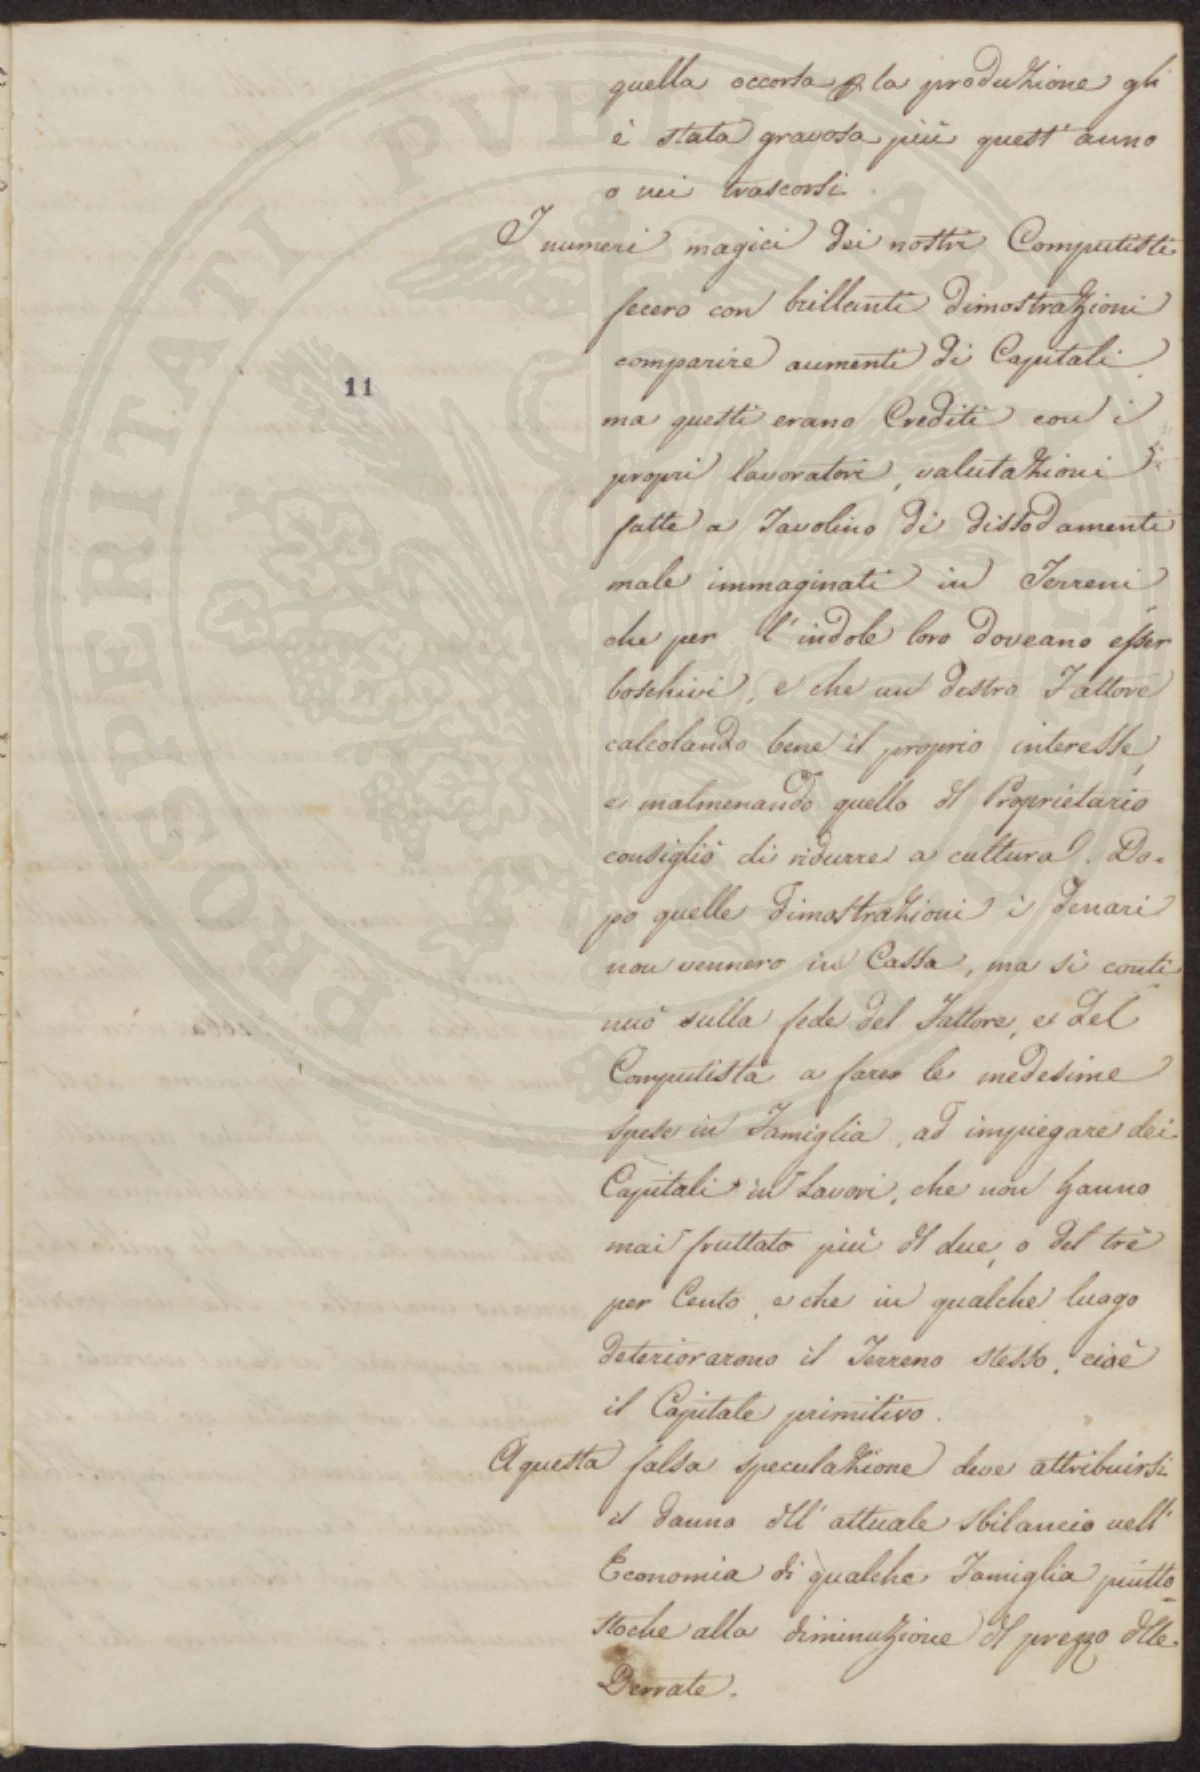 quella occorsa p la produzione gli
è stata gravosa più quest' anno
o nei trascorsi.
I numeri magici dei nostri Computisti
fecero con brillanti dimostrazioni
comparire aumenti di Capitali
11
ma questi erano Crediti con i
propri lavoratori, valutazioni
fatte a Tavolino di dissodamenti
male immaginati in Terreni
che per l'indole loro doveano esser
boschivi, e che un destro Fattore
calcolando bene il proprio interesse,
e malmenando quello dl Proprietario
consigliò di ridurre a cultura. Do-
po quelle dimostrazioni i denari
non vennero in Cassa, ma si conti-
nuò sulla fede del Fattore, e del
Computista a fare le medesime
spese in Famiglia, ad impiegare dei
Capitali in Lavori, che non hanno
mai fruttato più dl due, o del trè
per Cento, e che in qualche luogo
deteriorarono il Terreno stesso, cioè
il Capitale primitivo.
A questa falsa speculazione deve attribuirsi
il danno dll' attuale sbilancio nell'
Economia di qualche Famiglia piutto-
stoche alla diminuzione dl prezzo dlle
Derrate.
PROSPERITATI PVBLICAE AVGENDAE